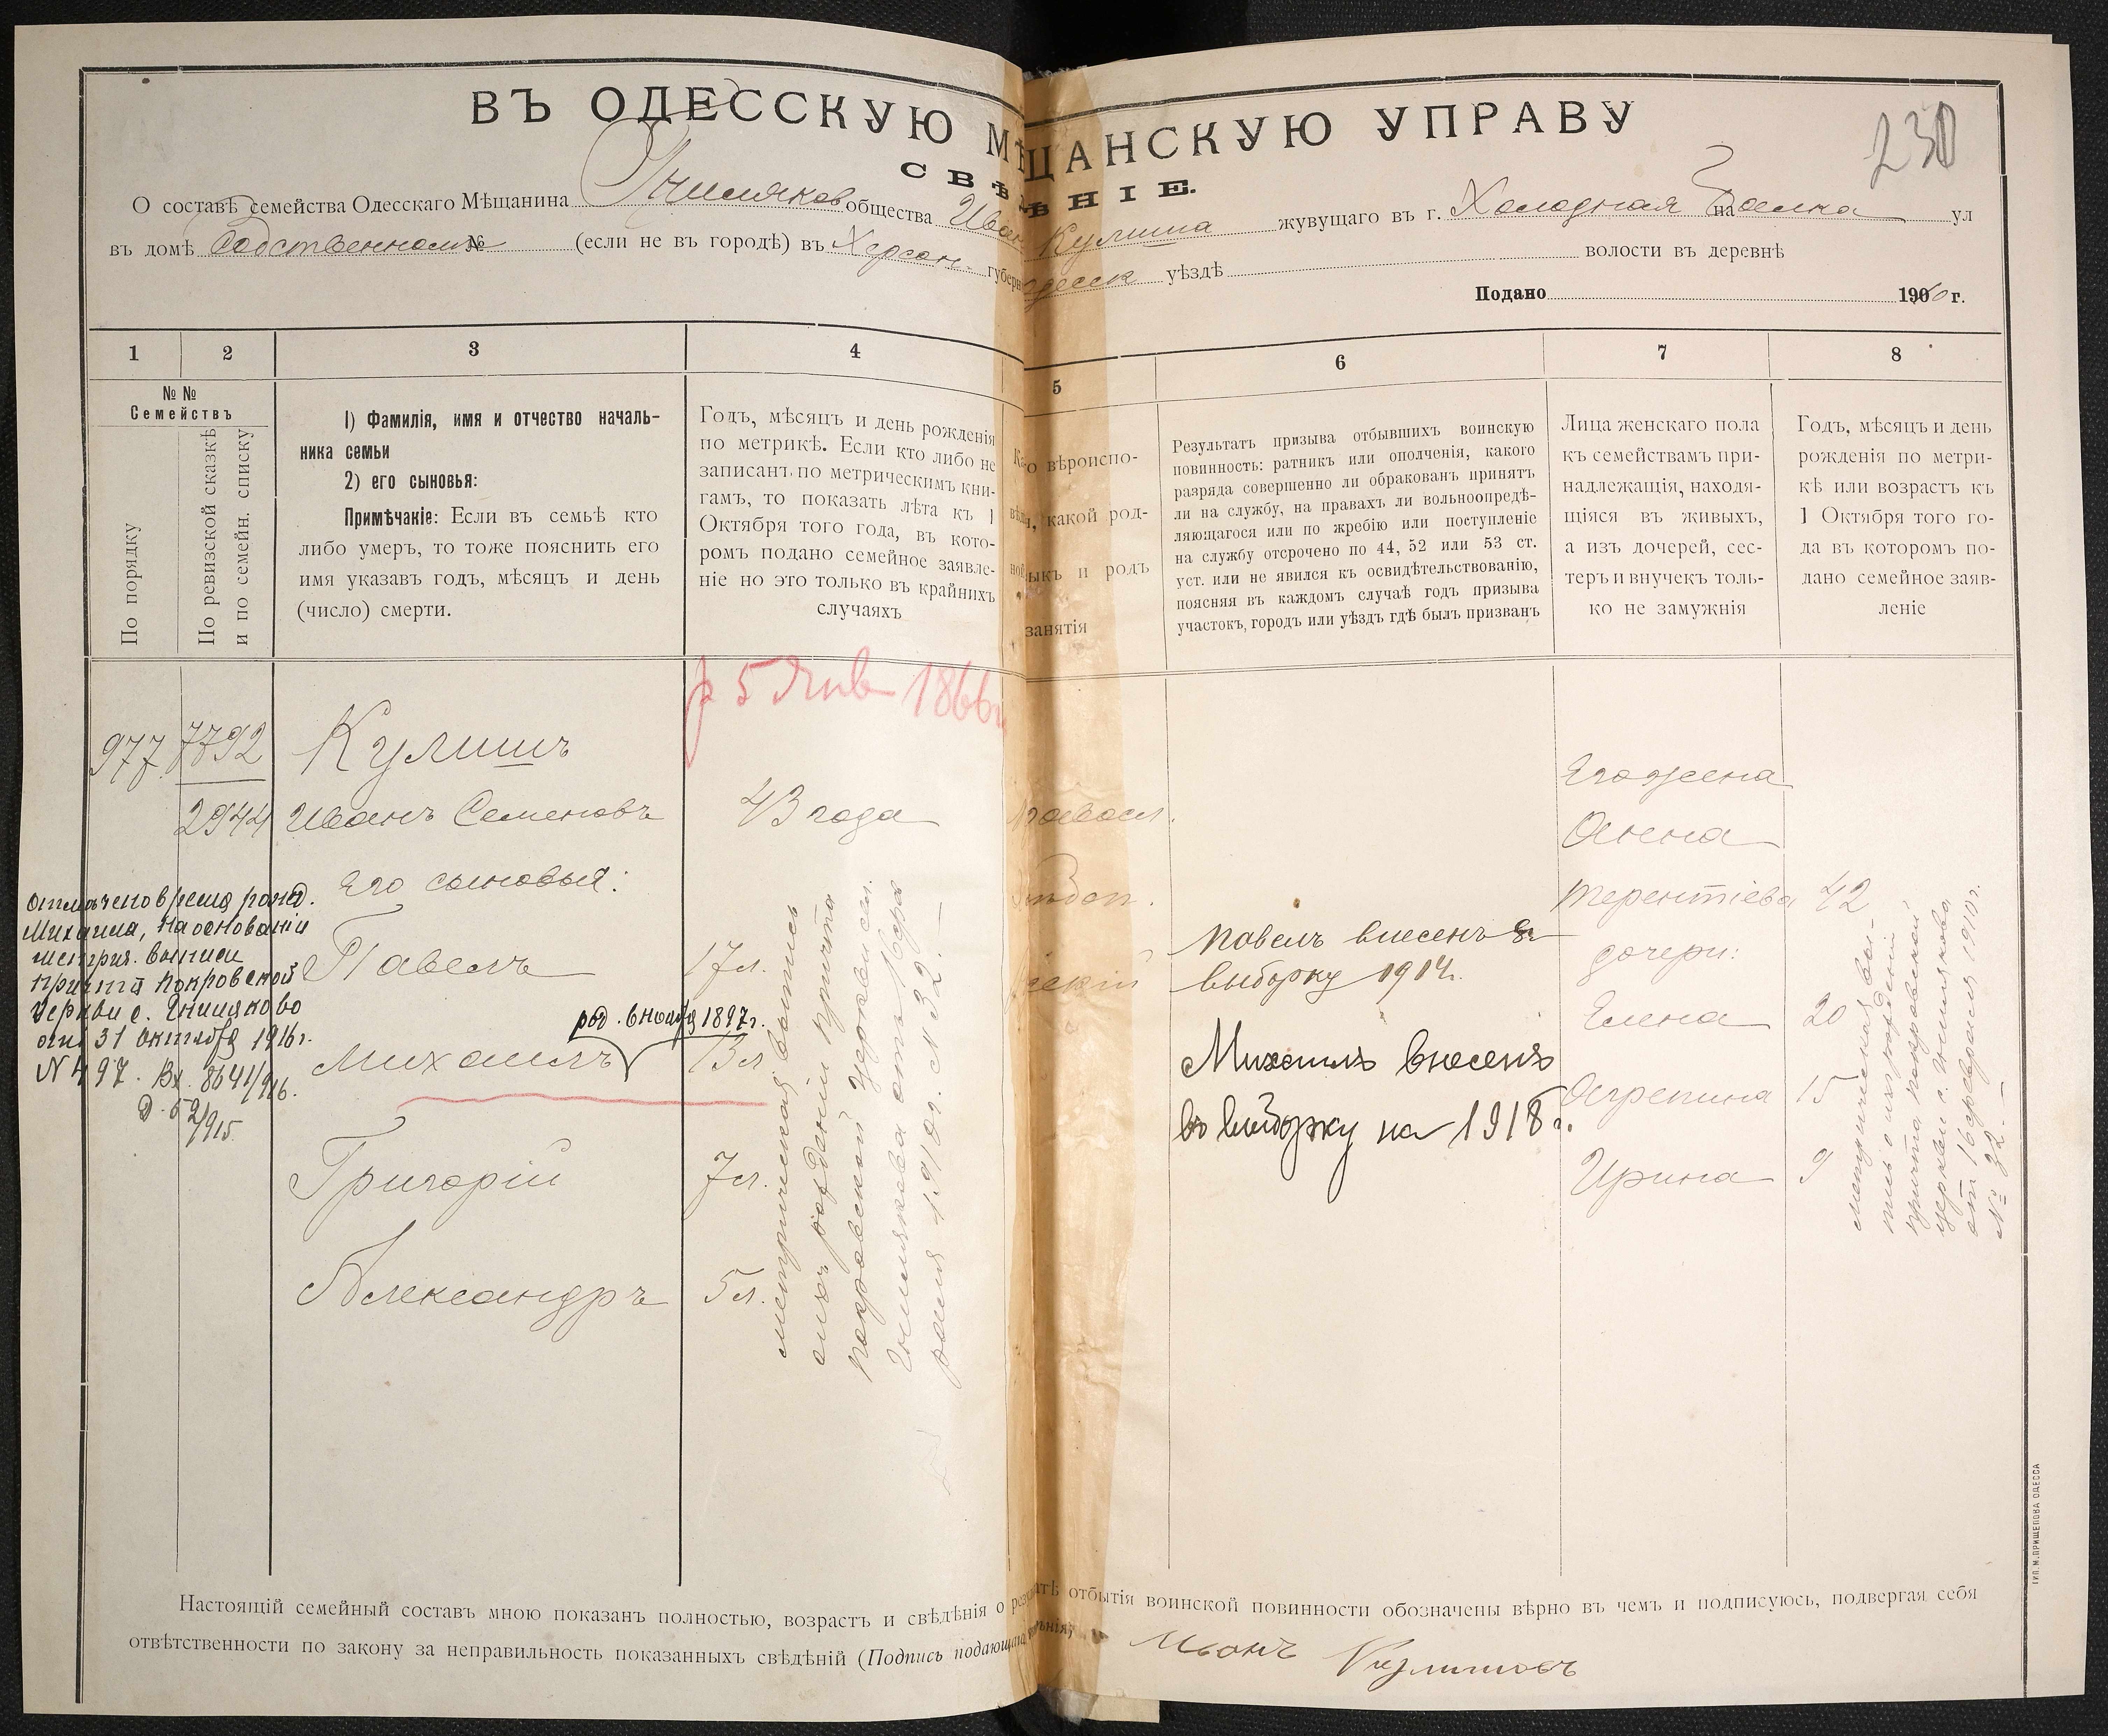 230
ВЪ ОДЕССКУЮ МѢЩАНСКУЮ УПРАВУ
СВѢДѢНІЕ.
О составѣ семейства Одесскаго Мѣщанина Гниляков общества Иван Кулиша жувущаго въ г. Холодная Балка на ул
въ домѣ Собственном № (если не въ городѣ) въ Херсон. губерн Одесск уѣздѣ волости въ деревнѣ
Подано 1910 г.
1 2 3 4 5 6 7 8
№ №
Семействъ
По порядку
По ревизской сказкѣ
и по семейн. списку
1) Фамилія, имя и отчество началь-
ника семьи
2) его сыновья:
Примѣчакіе: Если въ семьѣ кто
либо умеръ, то тоже пояснить его
имя указавъ годъ, мѣсяцъ и день
(число) смерти.
Годъ, мѣсяцъ и день рожденія
по метрикѣ. Если кто либо не
записанъ по метрическимъ кни-
гамъ, то показать лѣта къ 1
Октября того года, въ кото-
ромъ подано семейное заявле-
ніе но это только въ крайнихъ
случаяхъ
Ка го вѣроиспо-
вѣд я, какой род-
ной языкъ и родъ
занятія
Результатъ призыва отбывшихъ воинскую
повинность: ратникъ или ополченія, какого
разряда совершенно ли обракованъ принятъ
ли на службу, на правахъ ли вольноопредѣ-
ляющагося или по жребію или поступленіе
на службу отсрочено по 44, 52 или 53 ст.
уст. или не явился къ освидѣтельствованію,
поясняя въ каждомъ случаѣ годъ призыва
участокъ, городъ или уѣздъ гдѣ былъ призванъ
Лица женскаго пола
къ семействамъ при-
надлежащія, находя-
щіяся въ живыхъ,
а изъ дочерей, сес-
теръ и внучекъ толь-
ко не замужнія
Годъ, мѣсяцъ и день
рожденія по метри-
кѣ или возрастъ къ
1 Октября того го-
да въ которомъ по-
дано семейное заяв-
леніе
р 5 Янв 1866
977 7792
2944
Кулишъ
Иванъ Семеновъ 43 года
Православ.
Его сыновья:
Павелъ 17 л.
род. 6 ноября 1897 г.
Михаилъ 13 л
Григорій 7 л.
Александръ 5 л.
Отмѣчено время рожд.
Михаила, на основаніи
метрич. выписи
причта Покровской
церкви с. Гниляково
отъ 31 октября 1916 г.
N 497. Вх. 8641/916.
Д. 52/915.
метрическая выпись
о ихъ рожденіи причта
Покровской церкви сел.
Гнилякова отъ 16 фев
раля 1910 г. N 32.—
Павелъ внесенъ въ
выборку 1914 г.
Михаилъ внесенъ
въ выборку на 1918 г.
Его жена
Анна
Терентіева 42
дочери:
Елена 20
Агрепина 15
Ирина 9
Метрическая вы-
пись о ихъ рожденіи
причта Покровской
церкви с. Гнилякова
отъ 16 февраля 1910 г.
№ 32.—
Настоящій семейный составъ мною показанъ полностью, возрастъ и свѣдѣнія о результатѣ отбытія воинской повинности обозначены вѣрно въ чемъ и подписуюсь, подвергая себя
отвѣтственности по закону за неправильность показанныхъ свѣдѣній (Подпись подающаго Иванъ Кулишовъ
ТИП. М. ПРИЩЕПОВА ОДЕССА